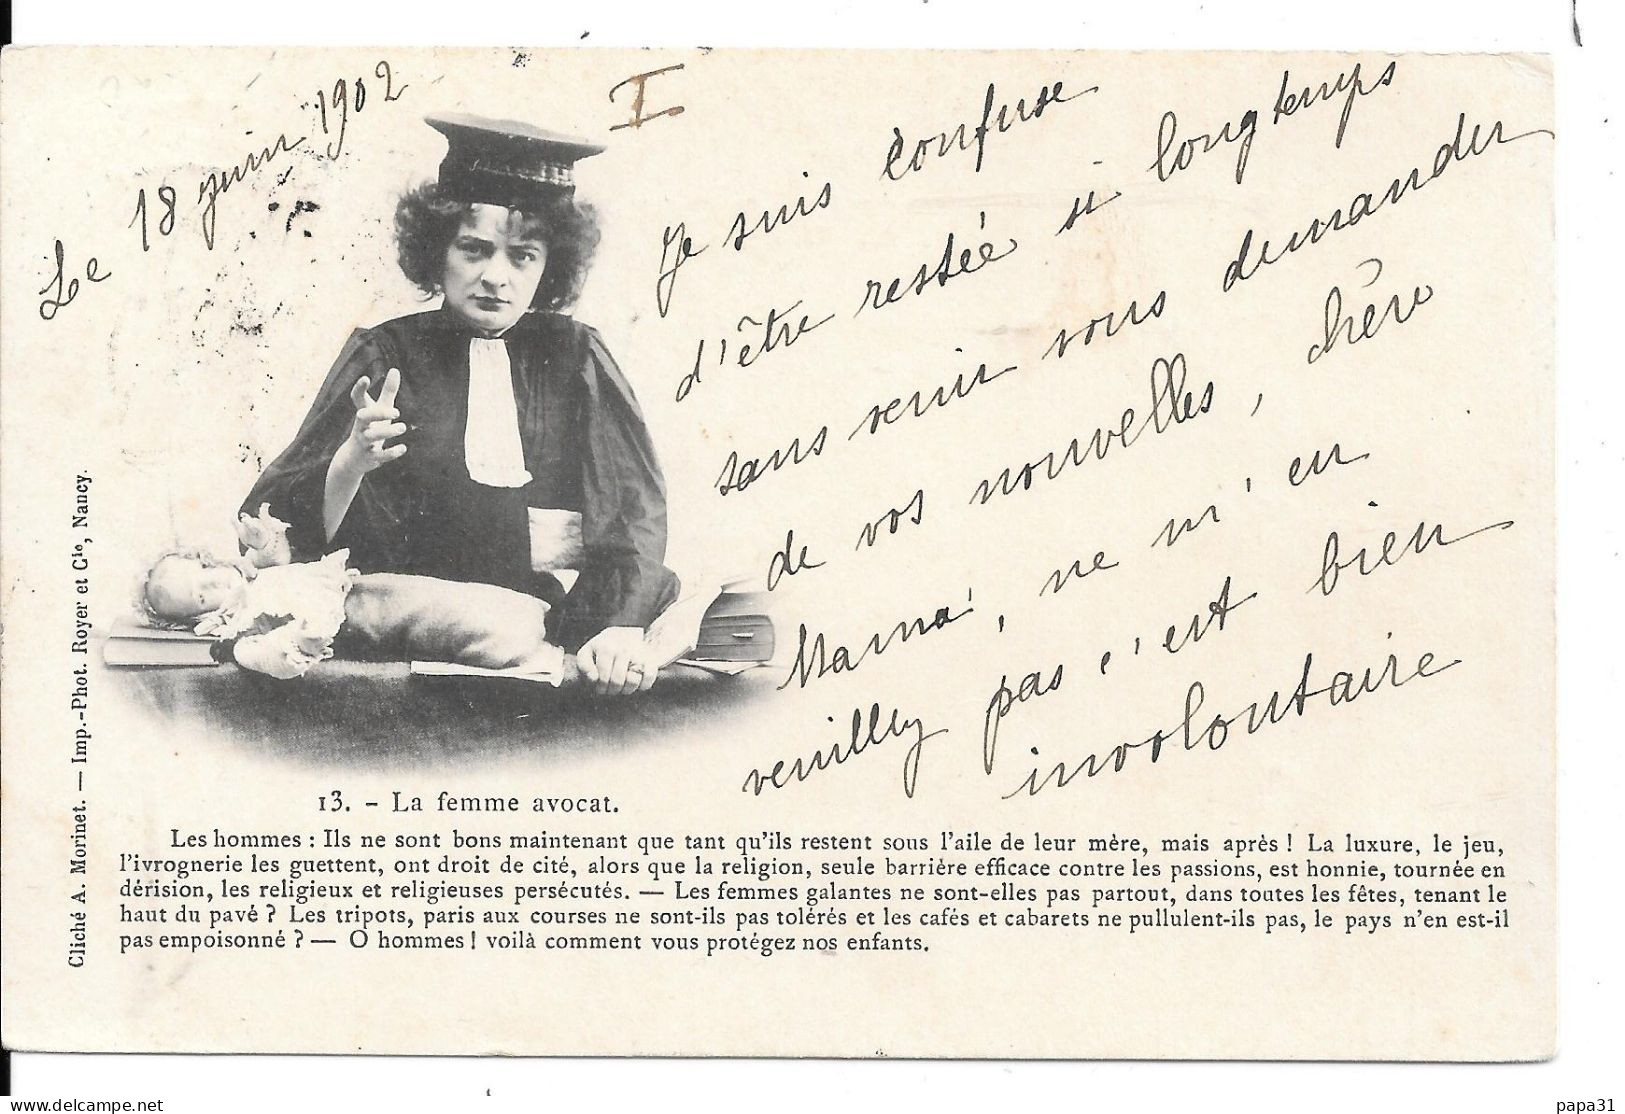 Le 18 juin 1902
I
Je suis confuse
d'être restée si longtemps
sans venir vous demander
de vos nouvelles, chère
Mama, ne m'en
veuilley pas c'est bien
involontaire
Cliché A. Morinet. — Imp.-Phot. Royer et Cie, Nancy.
13. - La femme avocat.
Les hommes : Ils ne sont bons maintenant que tant qu'ils restent sous l'aile de leur mère, mais après ! La luxure, le jeu,
l'ivrognerie les guettent, ont droit de cité, alors que la religion, seule barrière efficace contre les passions, est honnie, tournée en
dérision, les religieux et religieuses persécutés. — Les femmes galantes ne sont-elles pas partout, dans toutes les fêtes, tenant le
haut du pavé ? Les tripots, paris aux courses ne sont-ils pas tolérés et les cafés et cabarets ne pullulent-ils pas, le pays n'en est-il
pas empoisonné ? — O hommes ! voilà comment vous protégez nos enfants.
delcampe.net
papa31